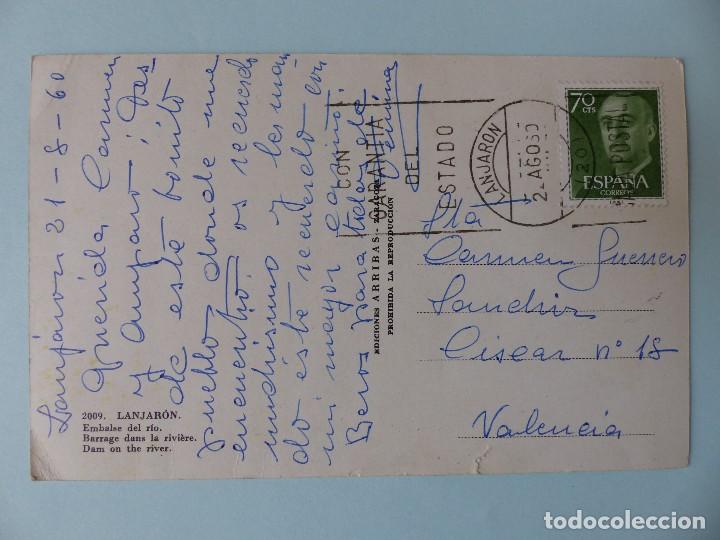 Lanjaron 21-8-60
Querida Carmen
y Amparo: Des-
de este bonito
pueblo donde me
encuentro os recuerdo
muchisimo y les man
do este recuerdo con
mi mayor cariño.
Besos para todos de
2009. LANJARÓN.
Embalse del río.
Barrage dans la rivière.
Dam on the river.
EDICIONES ARRIBAS - ZARAGOZA
PROHIBIDA LA REPRODUCCIÓN
CON
GARANTIA
DEL
ESTADO
LANJARON
2 AGO 60
POSTAL
70
CTS
ESPAÑA
CORREOS
Srtá
Carmen Guerrero
Sanchis
Ciscar nº 18
Valencia
todocoleccion.net